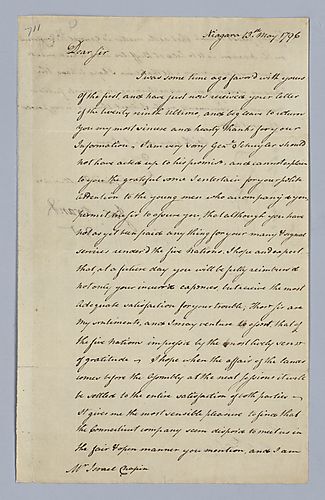 Niagara 13th May 1796
Dear Sir
I was some time ago favor'd with yours
of the first and have just now received your letter
of the twenty ninth Ultimo, and beg leave to return
you my most sincere and hearty thanks for your
Information. I am very sorry Genl Schuyler should
not have acted up to his promise and cannot explain
to you the grateful sense I entertain for your polite
attention to the young men who accompany'd you
permit me sir to assure you that although you have
not as yet been paid any thing for your many & signal
services render'd the five Nations, I hope and expect
that at a future day you will be fully reimbursed
not only your incurr'd expences, but receive the most
adequate satisfaction for your trouble, these sir are
my sentiments, and I may venture to speak that of
the five Nations impress'd by the most lively sense
of gratitude - I hope when the affair of the lands
comes before the Assembly at the next sessions it will
be settled to the entire satisfaction of both parties -
It gives me the most sensible pleasure to find that
the Connecticut company seem disposed to meet us in
the fair & open manner you mention, and I am
Mr Israel Chapin